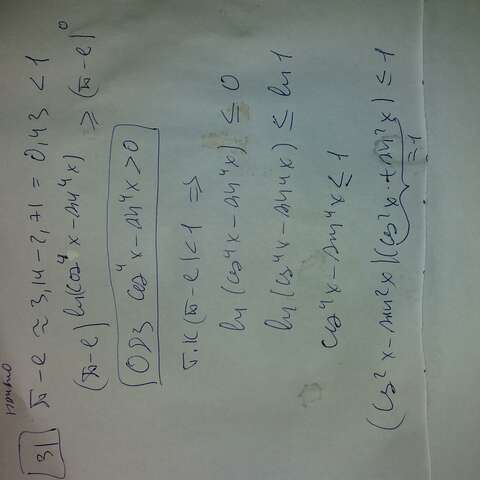 31
π-e ≈ 3,14-2,71 = 0,43 < 1
(π-e)^ln(cos⁴x-sin⁴x) ≥ (π-e)⁰
ОДЗ cos⁴x-sin⁴x>0
т.к (π-e)<1 ⇒
ln(cos⁴x-sin⁴x) ≤ 0
ln(cos⁴x-sin⁴x) ≤ ln1
cos⁴x-sin⁴x ≤ 1
(cos²x-sin²x)(cos²x+sin²x) ≤ 1
=1